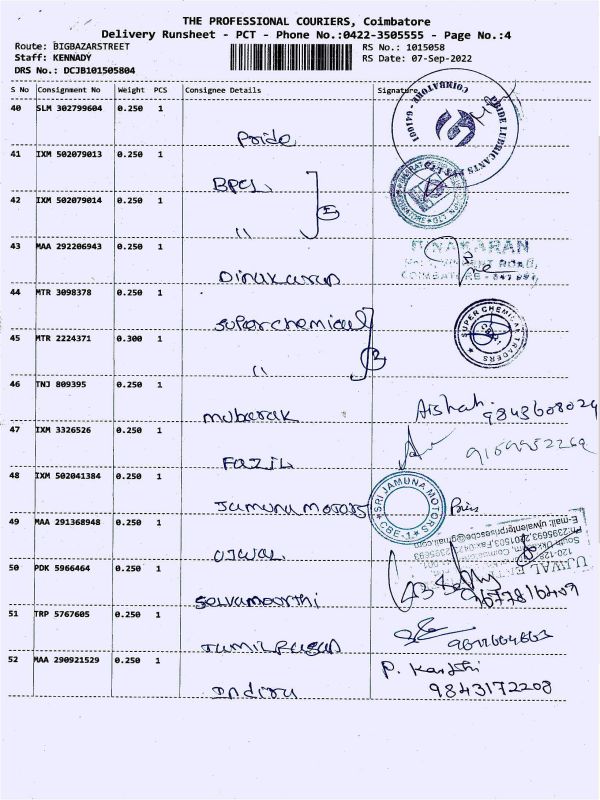 THE PROFESSIONAL COURIERS, Coimbatore
Delivery Runsheet - PCT - Phone No.:0422-3505555 - Page No.:4
Route: BIGBAZARSTREET
Staff: KENNADY
DRS No.: DCJB101505804
RS No.: 1015058
RS Date: 07-Sep-2022
S No Consignment No Weight PCS Consignee Details Signature
40 SLM 302799604 0.250 1
Pride
PRIDE LUBRICANTS COIMBATORE 641001
41 IXM 502079013 0.250 1
BPCL
42 IXM 502079014 0.250 1
"
43 MAA 292206943 0.250 1
DINAKARAN
Dinakaran
COIMBATORE
44 MTR 3098378 0.250 1
Super chemical
SUPER CHEMICAL TRADERS
45 MTR 2224371 0.300 1
" 2
46 TNJ 809395 0.250 1
Mubarak
Aishah. 9843608024
47 IXM 3326526 0.250 1
Fazil
9159952269
48 IXM 502041384 0.250 1
Jamuna Motors
SRI JAMUNA MOTORS CBE-1
49 MAA 291368948 0.250 1
Ujwal
UJWAL
E-mail: ujwalenterprisescbe@gmail.com
50 PDK 5966464 0.250 1
Selvamoorthi
9677816409
51 TRP 5767605 0.250 1
52 MAA 290921529 0.250 1
Indiru
9843172208